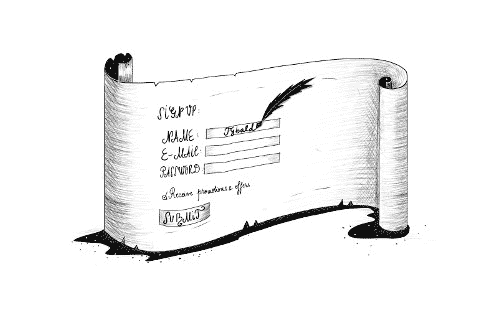 SIGN UP:
NAME:
E-MAIL:
PASSWORD
Receive promotions & offers
SUBMIT